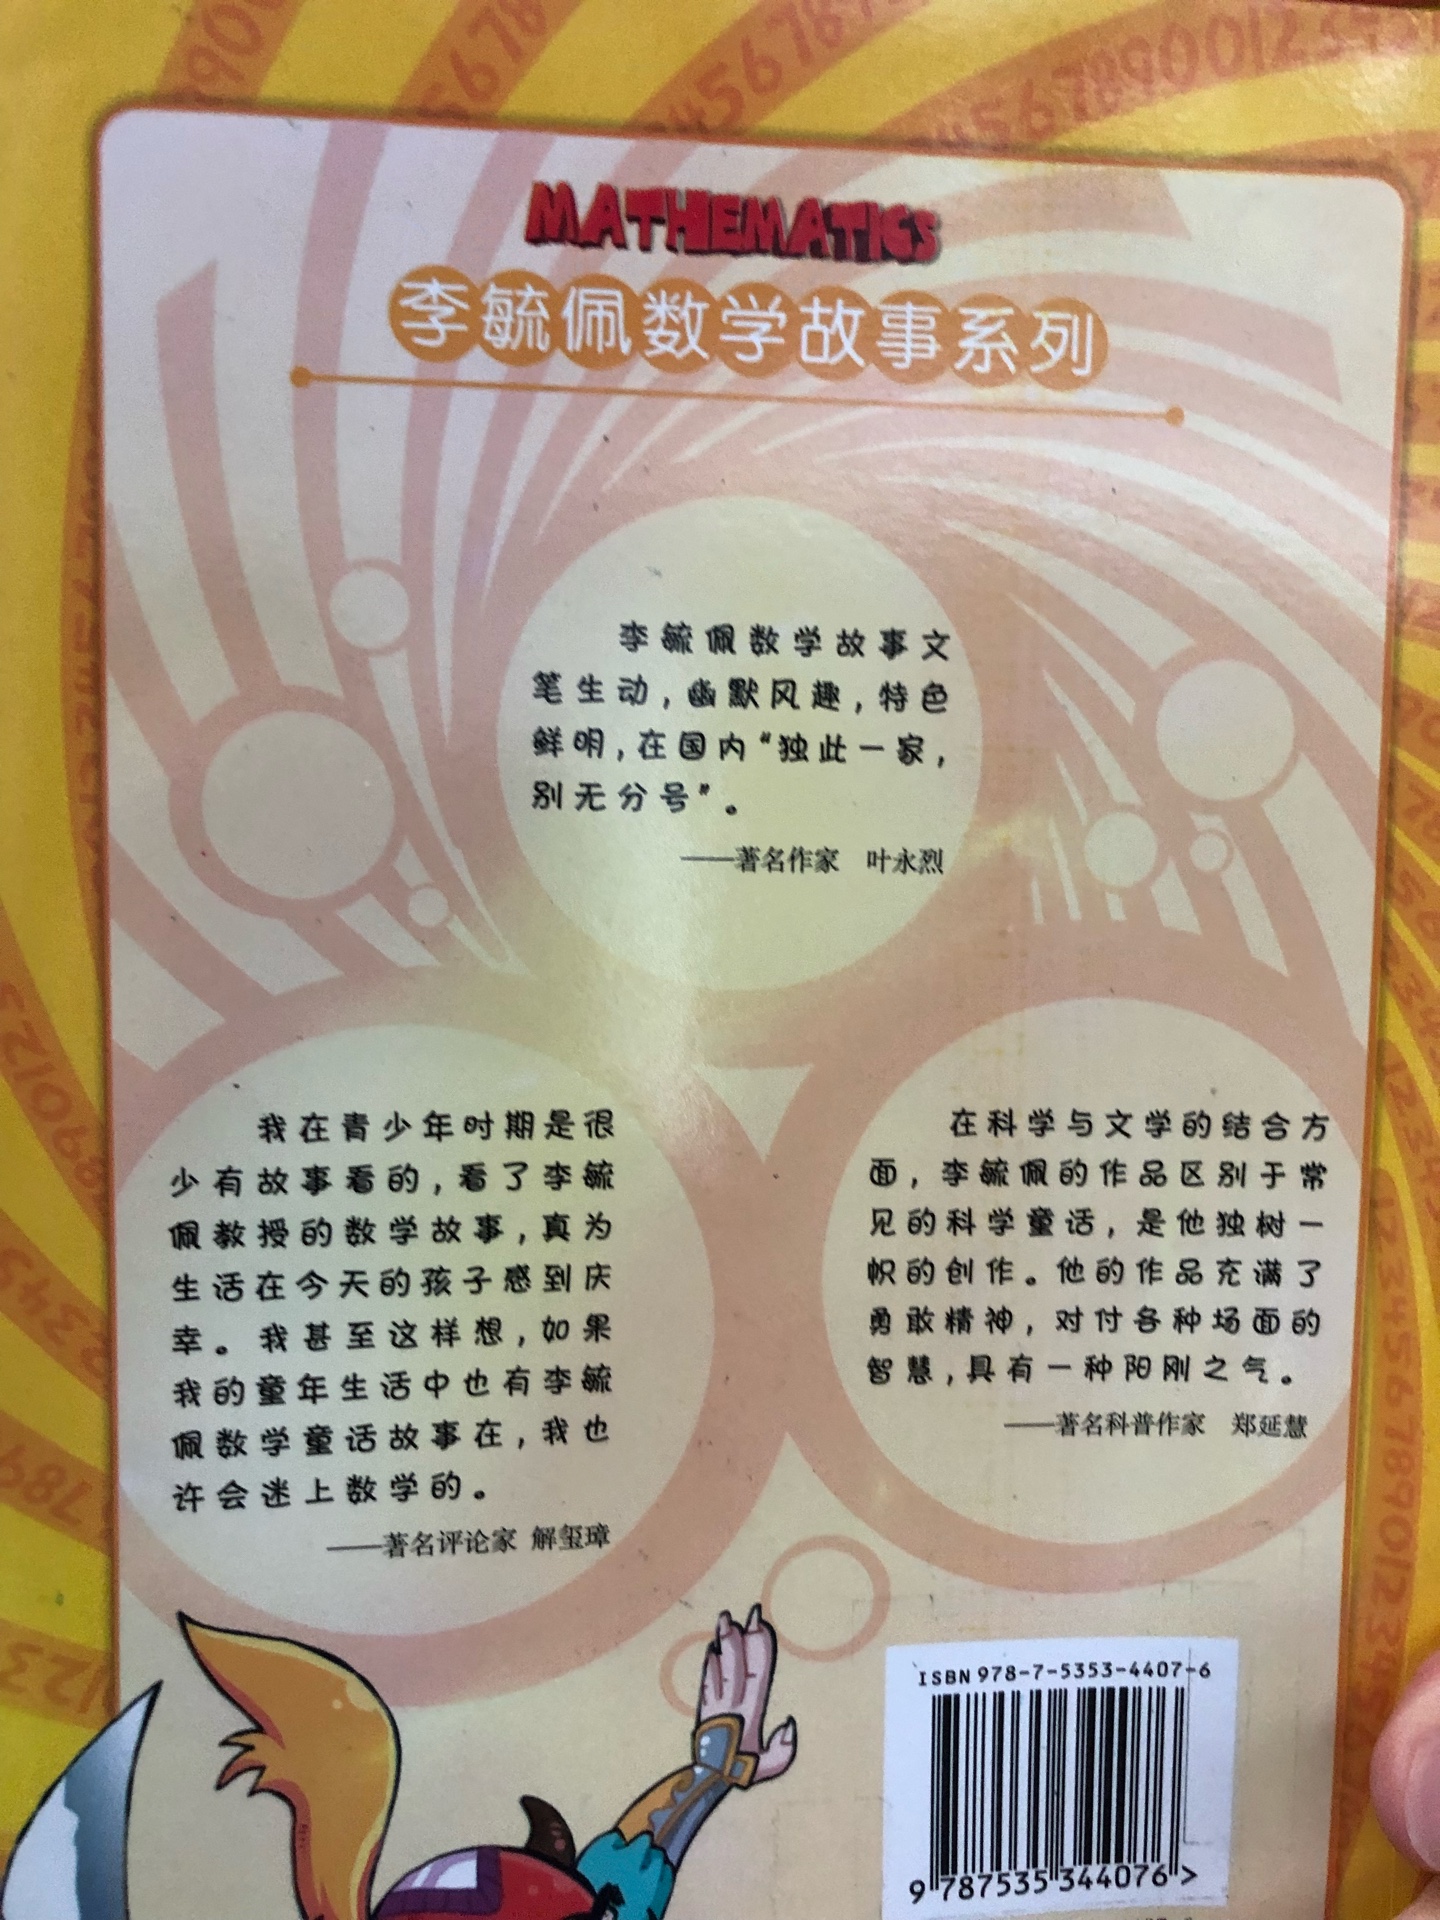 MATHEMATICS
李毓佩数学故事系列
李毓佩数学故事文
笔生动，幽默风趣，特色
鲜明，在国内“独此一家，
别无分号”。
——著名作家 叶永烈
我在青少年时期是很
少有故事看的，看了李毓
佩教授的数学故事，真为
生活在今天的孩子感到庆
幸。我甚至这样想，如果
我的童年生活中也有李毓
佩数学童话故事在，我也
许会迷上数学的。
——著名评论家 解玺璋
在科学与文学的结合方
面，李毓佩的作品区别于常
见的科学童话，是他独树一
帜的创作。他的作品充满了
勇敢精神，对付各种场面的
智慧，具有一种阳刚之气。
——著名科普作家 郑延慧
ISBN 978-7-5353-4407-6
9 787535 344076 >